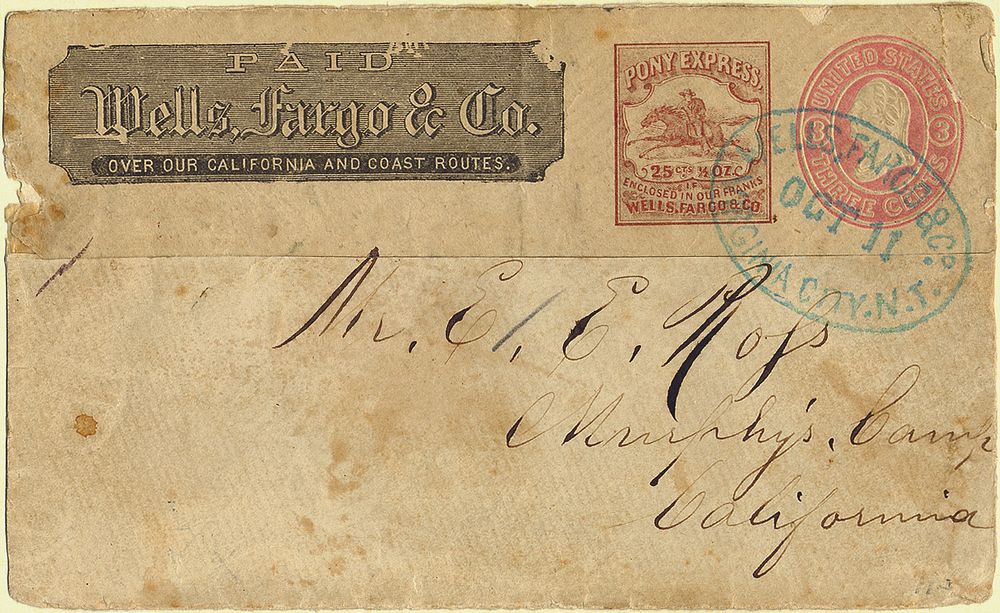 PAID
Wells, Fargo & Co.
OVER OUR CALIFORNIA AND COAST ROUTES.
PONY EXPRESS.
25 CTS ½ OZ.
IF
ENCLOSED IN OUR FRANKS
WELLS, FARGO & CO
UNITED STATES
3 3
THREE CENTS
WELLS, FARGO & Co.
OCT 11
GINIA CITY. N.T.
Mr. E. E. Ross
Murphy's, Camp
California